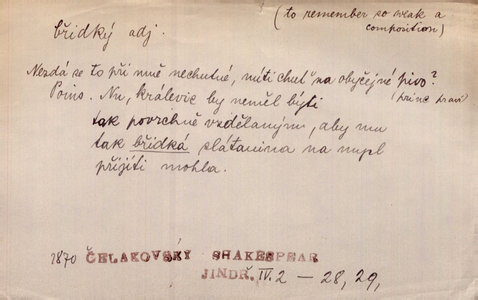 břidký adj.
(to remember so weak a
composition)
Nezdá se to při mně nechutné, míti chuť na obyčejné pivo?
(princ praví
Poins. Nu, králevic by neměl býti
tak povrchně vzdělaným, aby mu
tak břidká slátanina na mysl
přijíti mohla.
1870 ČELAKOVSKÝ SHAKESPEAR
JINDŘ. IV. 2 — 28, 29,